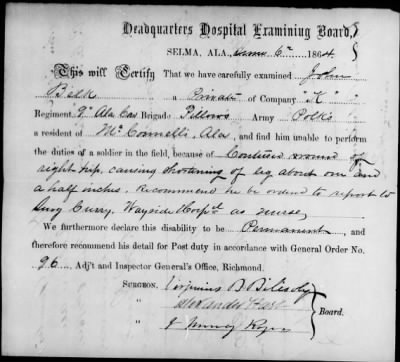 Headquarters Hospital Examining Board,
SELMA, ALA. June 6th 1864
This will Certify That we have carefully examined John
Belk a Private of Company "K"
Regiment, 9" Ala Cav Brigade Pillows Army Polks
a resident of McConnells, Ala, and find him unable to perform
the duties of a soldier in the field, because of Contused wound of
right hip, causing shortening of leg about one and
a half inches. Recommend he be ordered to report to
Surg Curry, Wayside Hospl as nurse,
We furthermore declare this disability to be Permanent and
therefore recommend his detail for Post duty in accordance with General Order No.
96 Adj't and Inspector General's Office, Richmond.
SURGEON. B
Alexander Hart
J
Board.